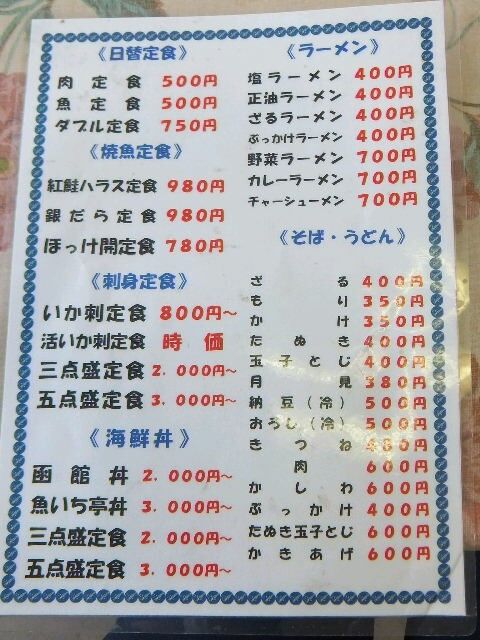 《日替定食》
肉定食 500円
魚定食 500円
ダブル定食 750円
《焼魚定食》
紅鮭ハラス定食 980円
銀だら定食 980円
ほっけ開定食 780円
《刺身定食》
いか刺定食 800円〜
活いか刺定食 時価
三点盛定食 2.000円〜
五点盛定食 3.000円〜
《海鮮丼》
函館丼 2.000円〜
魚いち亭丼 3.000円〜
三点盛定食 2.000円〜
五点盛定食 3.000円〜
《ラーメン》
塩ラーメン 400円
正油ラーメン 400円
ざるラーメン 400円
ぶっかけラーメン 400円
野菜ラーメン 700円
カレーラーメン 700円
チャーシューメン 700円
《そば・うどん》
ざる 400円
もり 350円
かけ 350円
たぬき 400円
玉子とじ 400円
月見 380円
納豆(冷) 500円
おろし(冷) 500円
きつね 480円
肉 600円
かしわ 600円
ぶっかけ 400円
たぬき玉子とじ 600円
かきあげ 600円